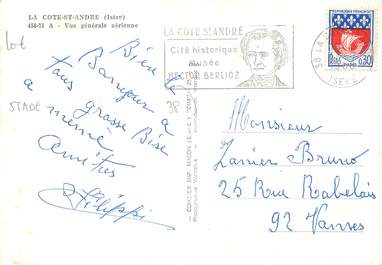 LA COTE-ST-ANDRÉ (Isère)
458-71 A - Vue générale aérienne
Lot
STADE
38
Bien le
Bonjour a
tous grosse Bise
a mémé
Amitiés
Filippi
LA COTE ST ANDRÉ
Cité historique
Musée
HECTOR BERLIOZ
38 LA
ISERE
REPUBLIQUE FRANÇAISE
0,30
Monsieur
Zanier Bruno
25 Rue Rabelais
92 Vanves